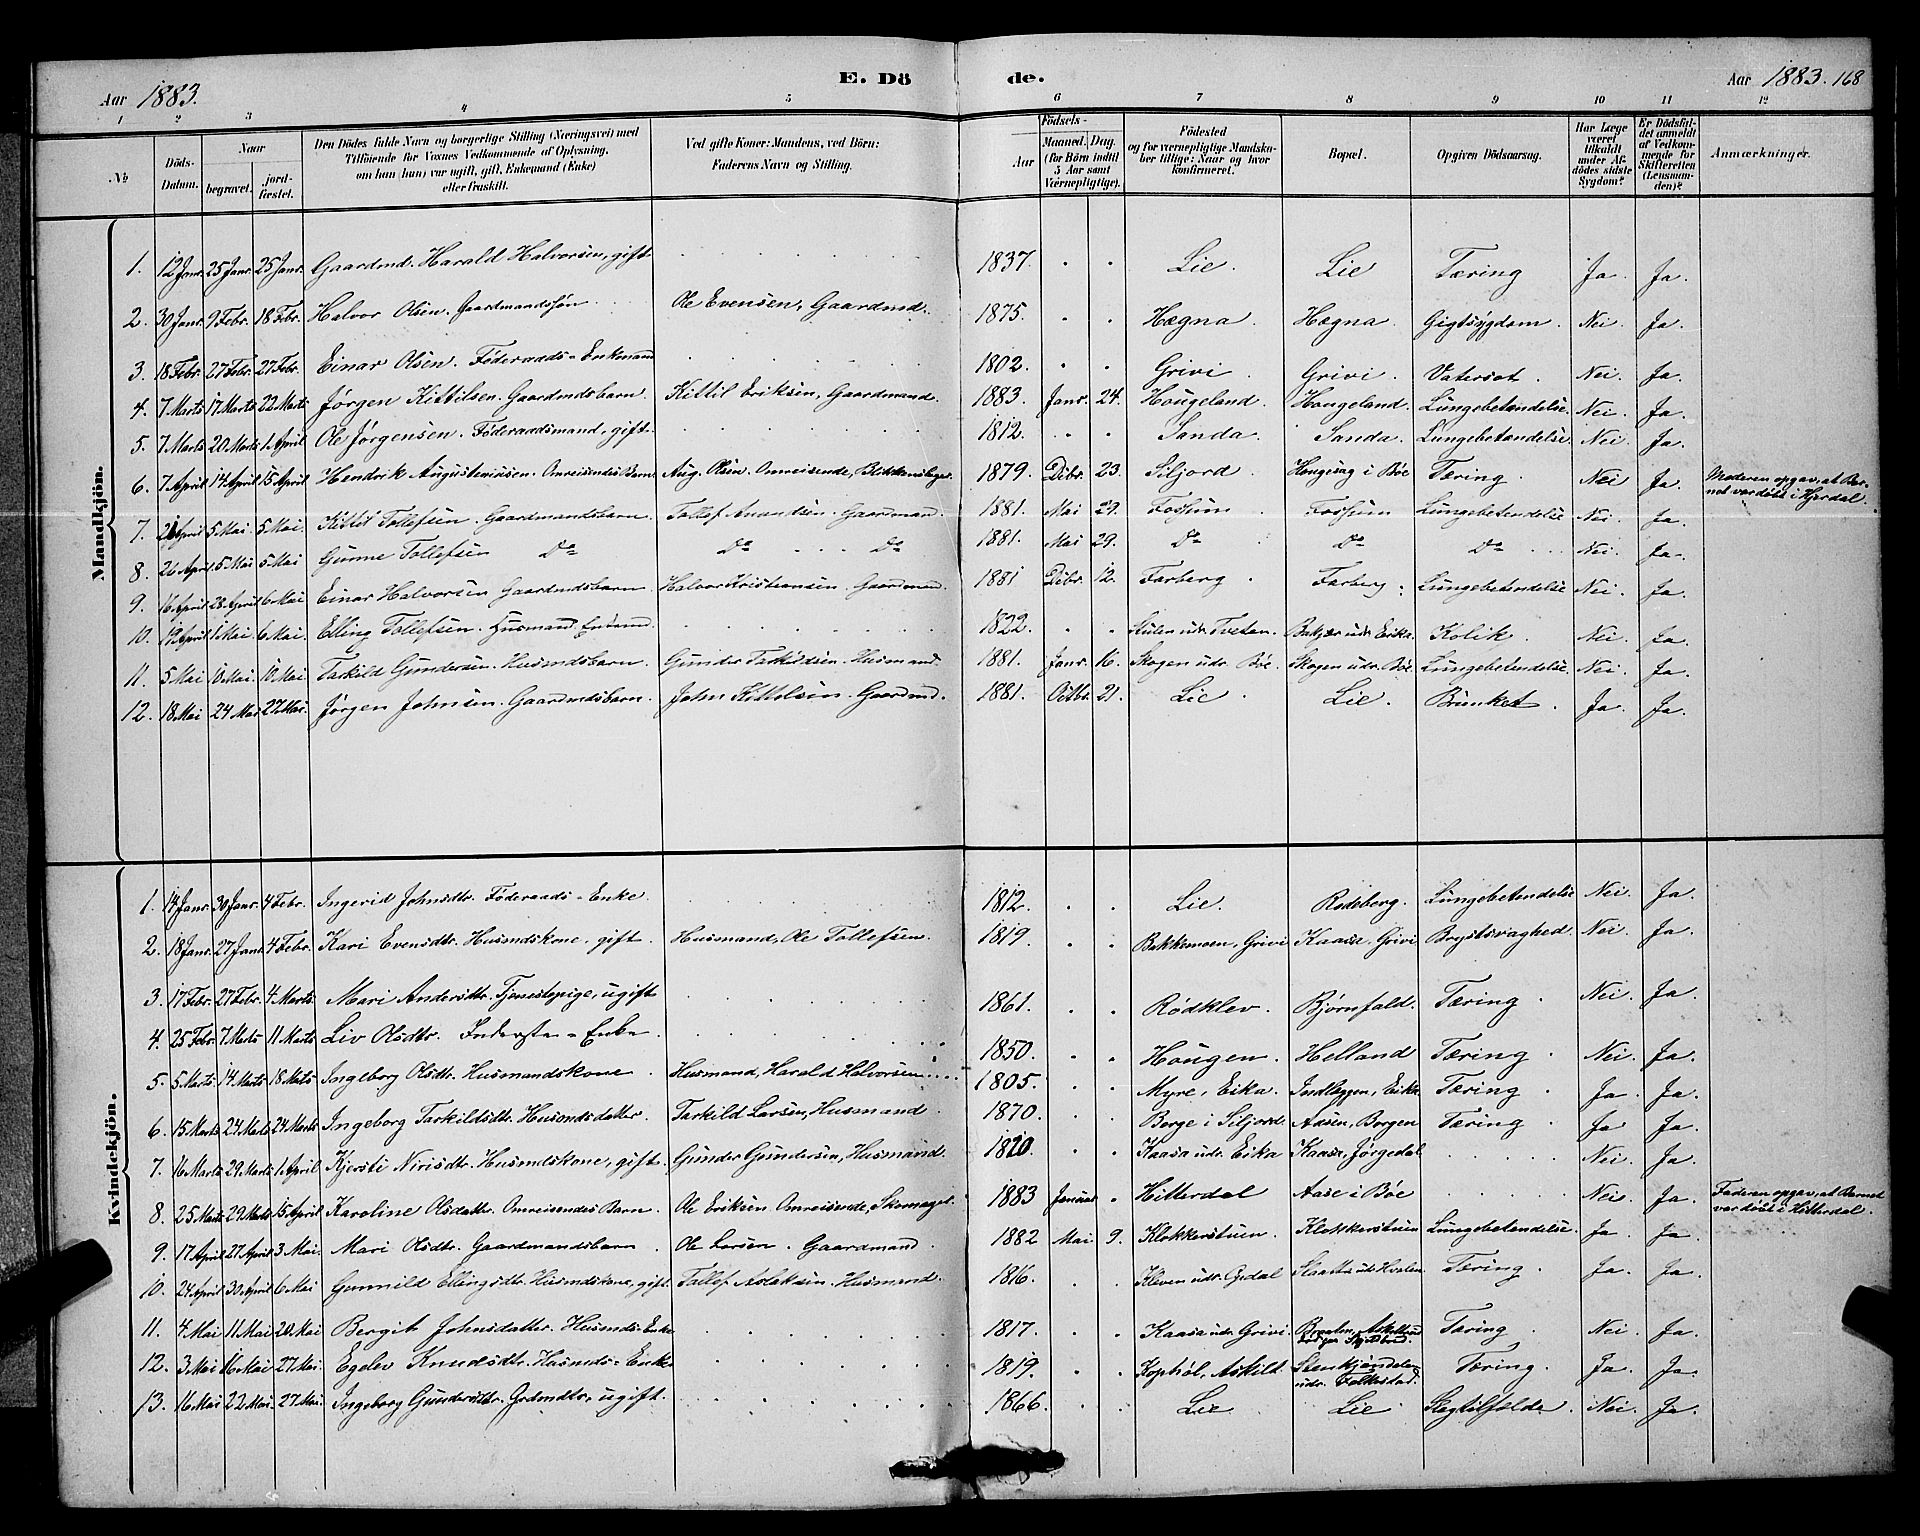 Aar 1883. E. Dö de. Aar 1883. 168
1 2 3 4 5 6 7 8 9 10 11 12
No Döds-Datum. Naar begravet. jordfæstet. Den Dödes fulde Navn og borgerlige Stilling (Næringsvei) med Tilföiende for Voxnes Vedkommende af Oplysning, om han (hun) var ugift, gift, Enkemand (Enke) eller fraskilt. Ved gifte Koner: Mandens, ved Börn: Faderens Navn og Stilling. Födsels- Aar Maaned. Dag. (for Börn indtil 5 Aar samt Værnepligtige). Födested og for værnepligtige Mandskaber tillige: Naar og hvor konfirmeret. Bopæl. Opgiven Dödsaarsag. Har Læge været tilkaldt under Afdödes sidste Sygdom? Er Dödsfaldet anmeldt af Vedkommende for Skifteretten (Lensmanden)? Anmærkninger.
Mandkjön.
1. 12 Janr. 25 Janr. 25 Janr. Gaardmd. Harald Halvorsen, gift 1837. Lie. Lie Tæring Ja. Ja.
2. 30 Janr. 9 Febr. 18 Febr. Halvor Olsen. Gaardmandssøn Ole Evensen, Gaardmd. 1875. Hægna. Hægna. Gigtsygdom. Nei. Ja.
3. 18 Febr. 27 Febr. 27 Febr. Einar Olsen. Føderaads-Enkemand 1802. Grivi Grivi. Vatersot. Nei. Ja.
4. 7 Marts 17 Marts 22 Marts Jørgen Kittilsen. Gaardmdsbarn. Kittil Eriksen, Gaardmand. 1883. Janr. 24. Hougeland. Hougeland. Lungebetændelse. Nei. Ja.
5. 7 Marts 20 Marts 1 April Ole Jørgensen. Føderaadsmand, gift. 1812. Sanda. Sanda. Lungebetændelse Nei. Ja.
6. 7 April 14 April 15 April Hendrik Augustiniusen. Omreisendes Barn. Aug. Olsen. Omreisende, Blikkenslager. 1879. Debr. 23. Siljord Hougesag i Bøe Tæring. Nei Ja. Moderen opgav, at Barnet var døbt i Hjerdal.
7. April 5 Mai 5 Mai. Kittil Tollefsen. Gaardmandsbarn. Tollef Amundsen. Gaardman. 1881. Mai 29. Fossum Fossum Lungebetændelse Nei. Ja.
8. 26 April 5 Mai 5 Mai Gunne Tollefsen Do Do Do 1881. Mai 29. Do Do Do Nei. Ja.
9. 16 April 28 April 6 Mai Einar Halvorsen Gaardmdsbarn Halvor Kristiansen. Gaardman. 1881 Debr. 12. Farberg. Farberg. Lungebetændelse Nei. Ja.
10. 19 April 1 Mai. 6 Mai. Elling Tollefsen. Husmand. 1822. Stulen udr. Tveten. Bakjær udr. Eika. Kolik. Nei. Ja.
11. 5 Mai 10 Mai. 10 Mai Tarkild Gundersen. Husmdsbarn. Gunder Tarkildsen. Husmand. 1881. Janr. 16. Skogen udr. Bøe. Skogen udr. Bøe. Lungebetændelse Nei. Ja.
12. 18 Mai 24 Mai 27 Mai. Jørgen Johnsen. Gaardmdsbarn. John Kittelsen. Gaardmd. 1881. Octbr. 21. Lie Lie. Brunket. Ja. Ja.
Kvindekjön.
1. 14 Janr. 30 Janr. 4 Febr. Ingerid Johnsdtr. Føderaads-Enke. 1812. Lie. Rødeberg. Lungebetændelse Nei. Ja.
2. 18 Janr. 27 Janr 4 Febr. Kari Evensdtr. Husmdskone, gift. Husmand, Ole Tollefsen. 1819. Bakkemoen, Grivi Kaasa. Grivi Brystsvaghed. Nei. Ja.
3. 17 Febr. 27 Febr. 4 Marts. Mari Andersdtr. Tjenestepige, ugift 1861. Rødklev. Bjørnfald. Tæring. Nei. Ja.
4. 25 Febr. 7 Marts 11 Marts Liv Olsdtr. Inderste-Enke. 1850. Hougen. Helland Tæring. Nei. Ja.
5. 5 Marts. 14 Marts 18 Marts Ingeborg Olsdtr. Husmandskone. Husmand, Harald Halvorsen. 1805. Myre, Eika. Indlæggen, Eika. Tæring Ja. Ja.
6. 15 Marts 24 Marts 24 Marts Ingeborg Tarkildsdtr. Husmdsdatter. Tarkild Larsen, Husmand. 1870. Berge i Siljord. Aasen, Borgen Tæring. Ja Ja.
7. 16 Marts 29 Marts 1 April Kjersti Nirisdtr. Husmdskone, gift. Gunder Gundersen, Husmand. 1820. Kaasa udr. Eika Kaasa, Jørgedal Nei. Ja.
8. 25 Marts 29 Marts 15 April Karoline Olsdatter Omreisendes Barn Ole Eriksen. Omreisende, Skomager. 1883 Januar Hitterdal Aase i Bøe Nei. Ja. Faderen opgav, at Barnet var døbt i Hitterdal.
9. 17 April 27 April 3 Mai. Mari Olsdtr. Gaardmandsbarn. Ole Larsen. Gaardmand. 1882 Mai 9. Klokkerstuen. Klokkerstuen Lungebetændelse. Ja. Ja.
10. 24 April 30 April 6 Mai Gunnild Ellingsdtr. Husmdskone, gift. Tollef Aslaksen. Husmand. 1816. Kleven udr. Opdal Slaatta udr. Hvalen Tæring. Ja. Ja.
11. 4 Mai 11 Mai 20 Mai Bergit Johnsdatter. Husmds-Enke 1817. Kaasa udr. Grivi. Tæring Nei. Ja.
12. 3 Mai 16 Mai 27 Mai. Egelev Knudsdtr. Husmds-Enke 1819. Kophøl, Askilt. Stenkjøndalen udr. Folkestad. Tæring. Ja. Ja.
13. 16 Mai 22 Mai 27 Mai. Ingeborg Gundersdtr. Grdmdtr., ugift. 1866. Lie Lie. Slagtilfælde. Nei. Ja.